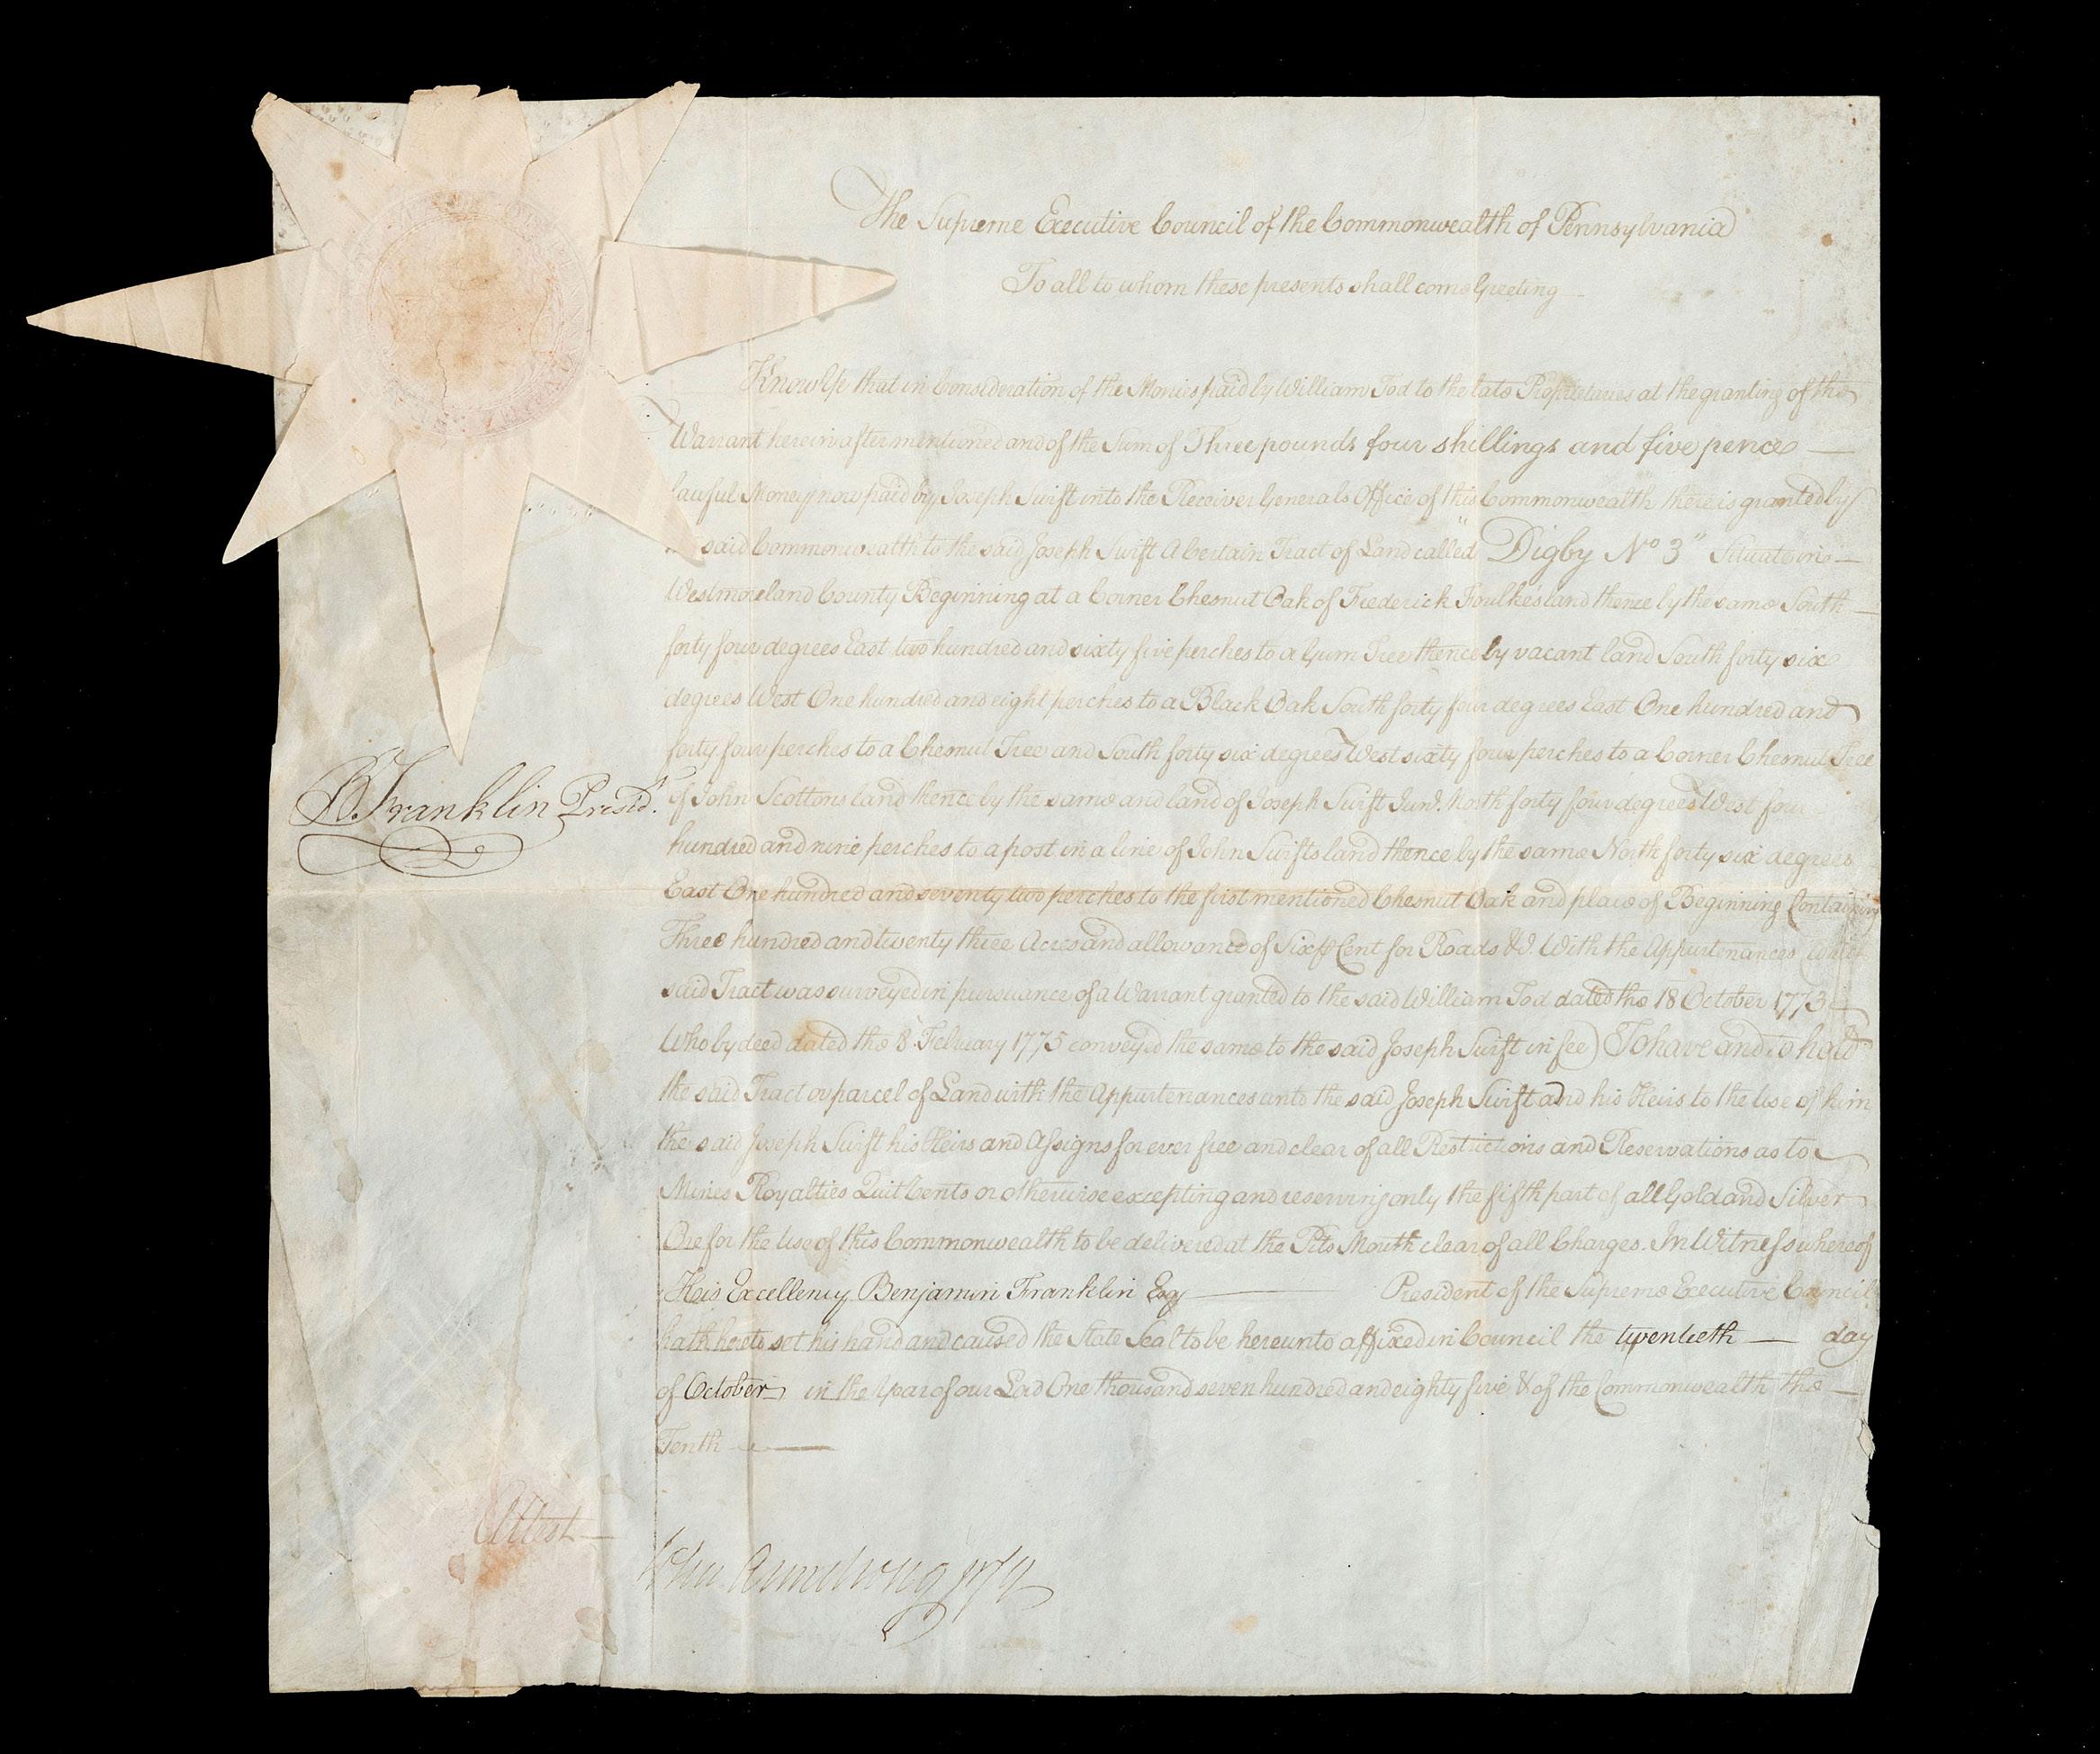 The Supreme Executive Council of the Commonwealth of Pennsylvania
To all to whom these presents shall come Greeting
Know Ye that in Consideration of the Monies paid by William Tod to the late Proprietaries at the granting of the
Warrant herein after mentioned and of the Sum of Three pounds four shillings and five pence
lawful Money now paid by Joseph Swift into the Receiver Generals Office of this Commonwealth there is granted by
said Commonwealth to the said Joseph Swift A Certain Tract of Land called "Digby No 3" Situate in
Westmoreland County Beginning at a Corner Chesnut Oak of Frederick Foulkes land thence by the same South
forty four degrees East two hundred and sixty five perches to a Gum Tree thence by vacant land South forty six
degrees West One hundred and eight perches to a Black Oak South forty four degrees East One hundred and
forty four perches to a Chesnut Tree and South forty six degrees West sixty four perches to a Corner Chesnut Tree
B Franklin Presidt.
of John Scottons land thence by the same and land of Joseph Swift Junr. North forty four degrees West four
hundred and nine perches to a post in a line of John Swifts land thence by the same North forty six degrees
East One hundred and seventy two perches to the first mentioned Chesnut Oak and place of Beginning Containing
Three hundred and twenty three Acres and allowance of Six ⅌ Cent for Roads &c. With the Appurtenances (which
said Tract was surveyed in pursuance of a Warrant granted to the said William Tod dated the 18 October 1773
Who by deed dated the 8 February 1775 conveyed the same to the said Joseph Swift in fee) To have and To hold
the said Tract or parcel of Land with the Appurtenances unto the said Joseph Swift and his Heirs to the Use of him
the said Joseph Swift his Heirs and Assigns for ever free and clear of all Restrictions and Reservations as to
Mines Royalties Quit Cents or otherwise excepting and reserving only the fifth part of all Gold and Silver
Ore for the Use of this Commonwealth to be delivered at the Pits Mouth clear of all Charges. In Witness whereof
His Excellency Benjamin Franklin Esq President of the Supreme Executive Council
hath hereto set his hand and caused the State Seal to be hereunto affixed in Council the twentieth day
of October in the Year of our Lord One thousand seven hundred and eighty five & of the Commonwealth the
Tenth
Attest
John Armstrong jr